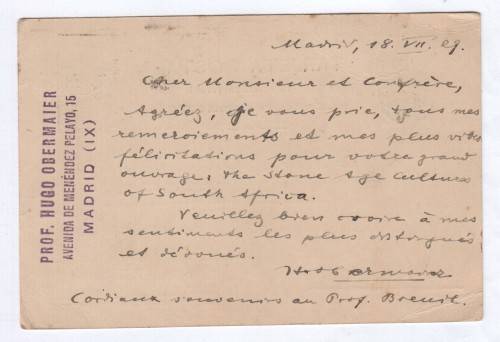 PROF. HUGO OBERMAIER
AVENIDA DE MENÉNDEZ PELAYO, 15
MADRID (IX)
Madrid, 18. VII. 29.
Cher Monsieur et Confrère,
Agréez, je vous prie, tous mes
remerciements et mes plus vives
félicitations pour votre grand
ouvrage: the Stone Age Cultures
of South Africa.
Veuillez bien croire à mes
sentiments les plus distingués
et dévoués.
H. Obermaier
Cordiaux souvenirs au Prof. Breuil.